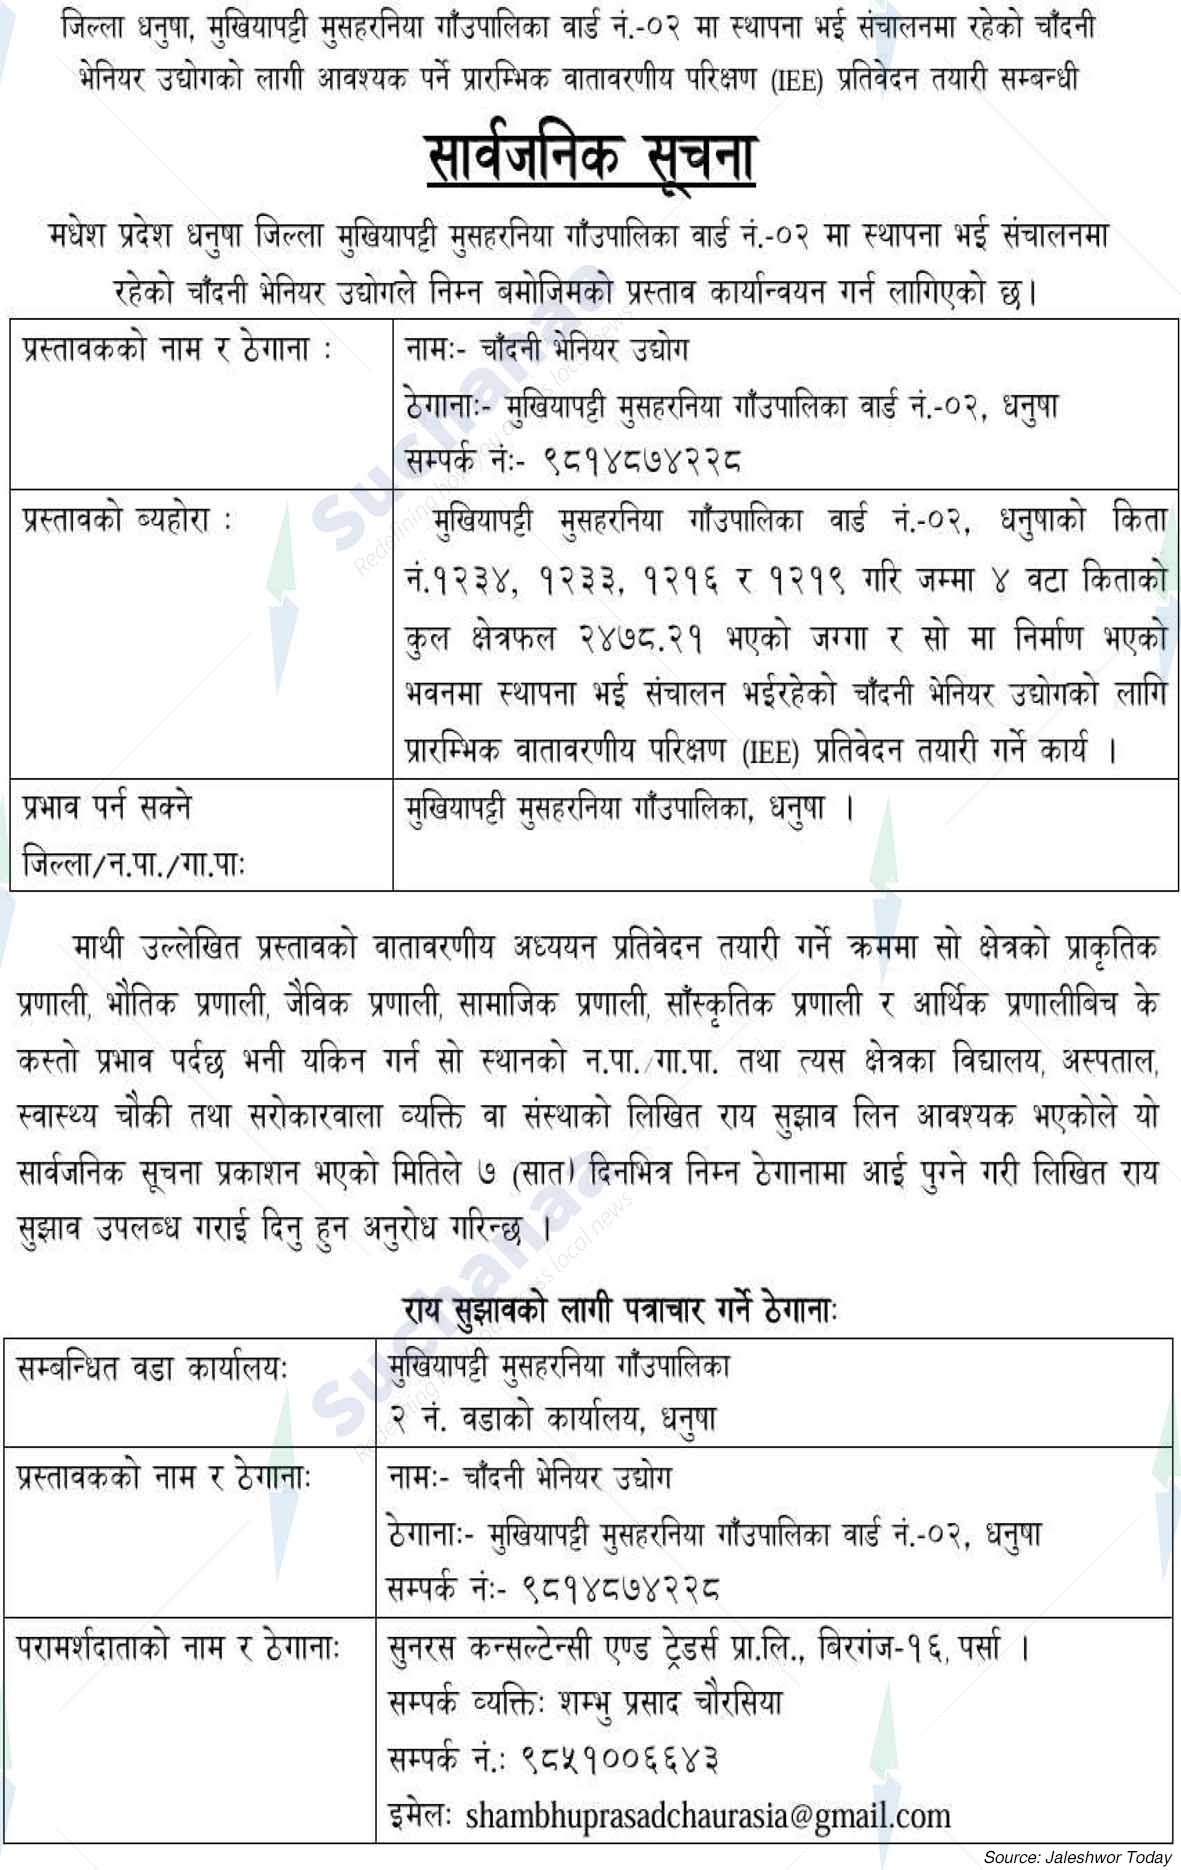 जिल्ला धनुषा, मुखियापट्टी मुसहरनिया गाँउपालिका वार्ड नं.-०२ मा स्थापना भई संचालनमा रहेको चाँदनी
भेनियर उद्योगको लागी आवश्यक पर्ने प्रारम्भिक वातावरणीय परिक्षण (IEE) प्रतिवेदन तयारी सम्बन्धी
सार्वजनिक सूचना
मधेश प्रदेश धनुषा जिल्ला मुखियापट्टी मुसहरनिया गाँउपालिका वार्ड नं.-०२ मा स्थापना भई संचालनमा
रहेको चाँदनी भेनियर उद्योगले निम्न बमोजिमको प्रस्ताव कार्यान्वयन गर्न लागिएको छ।
प्रस्तावकको नाम र ठेगाना :
नामः- चाँदनी भेनियर उद्योग
ठेगानाः- मुखियापट्टी मुसहरनिया गाँउपालिका वार्ड नं.-०२, धनुषा
सम्पर्क नंः- ९८१४८७४२२८
प्रस्तावको ब्यहोरा :
मुखियापट्टी मुसहरनिया गाँउपालिका वार्ड नं.-०२, धनुषाको किता
नं.१२३४, १२३३, १२१६ र १२१९ गरि जम्मा ४ वटा किताको
कुल क्षेत्रफल २४७८.२१ भएको जग्गा र सो मा निर्माण भएको
भवनमा स्थापना भई संचालन भईरहेको चाँदनी भेनियर उद्योगको लागि
प्रारम्भिक वातावरणीय परिक्षण (IEE) प्रतिवेदन तयारी गर्ने कार्य ।
प्रभाव पर्न सक्ने
जिल्ला/न.पा./गा.पाः
मुखियापट्टी मुसहरनिया गाँउपालिका, धनुषा ।
माथी उल्लेखित प्रस्तावको वातावरणीय अध्ययन प्रतिवेदन तयारी गर्ने क्रममा सो क्षेत्रको प्राकृतिक
प्रणाली, भौतिक प्रणाली, जैविक प्रणाली, सामाजिक प्रणाली, साँस्कृतिक प्रणाली र आर्थिक प्रणालीबिच के
कस्तो प्रभाव पर्दछ भनी यकिन गर्न सो स्थानको न.पा./गा.पा. तथा त्यस क्षेत्रका विद्यालय, अस्पताल,
स्वास्थ्य चौकी तथा सरोकारवाला व्यक्ति वा संस्थाको लिखित राय सुझाव लिन आवश्यक भएकोले यो
सार्वजनिक सूचना प्रकाशन भएको मितिले ७ (सात) दिनभित्र निम्न ठेगानामा आई पुग्ने गरी लिखित राय
सुझाव उपलब्ध गराई दिनु हुन अनुरोध गरिन्छ ।
राय सुझावको लागी पत्राचार गर्ने ठेगानाः
सम्बन्धित वडा कार्यालयः
मुखियापट्टी मुसहरनिया गाँउपालिका
२ नं. वडाको कार्यालय, धनुषा
प्रस्तावकको नाम र ठेगानाः
नामः- चाँदनी भेनियर उद्योग
ठेगानाः- मुखियापट्टी मुसहरनिया गाँउपालिका वार्ड नं.-०२, धनुषा
सम्पर्क नंः- ९८१४८७४२२८
परामर्शदाताको नाम र ठेगानाः
सुनरस कन्सल्टेन्सी एण्ड ट्रेडर्स प्रा.लि., बिरगंज-१६, पर्सा ।
सम्पर्क व्यक्तिः शम्भु प्रसाद चौरसिया
सम्पर्क नं.: ९८५१००६६४३
इमेलः shambhuprasadchaurasia@gmail.com
Source: Jaleshwor Today